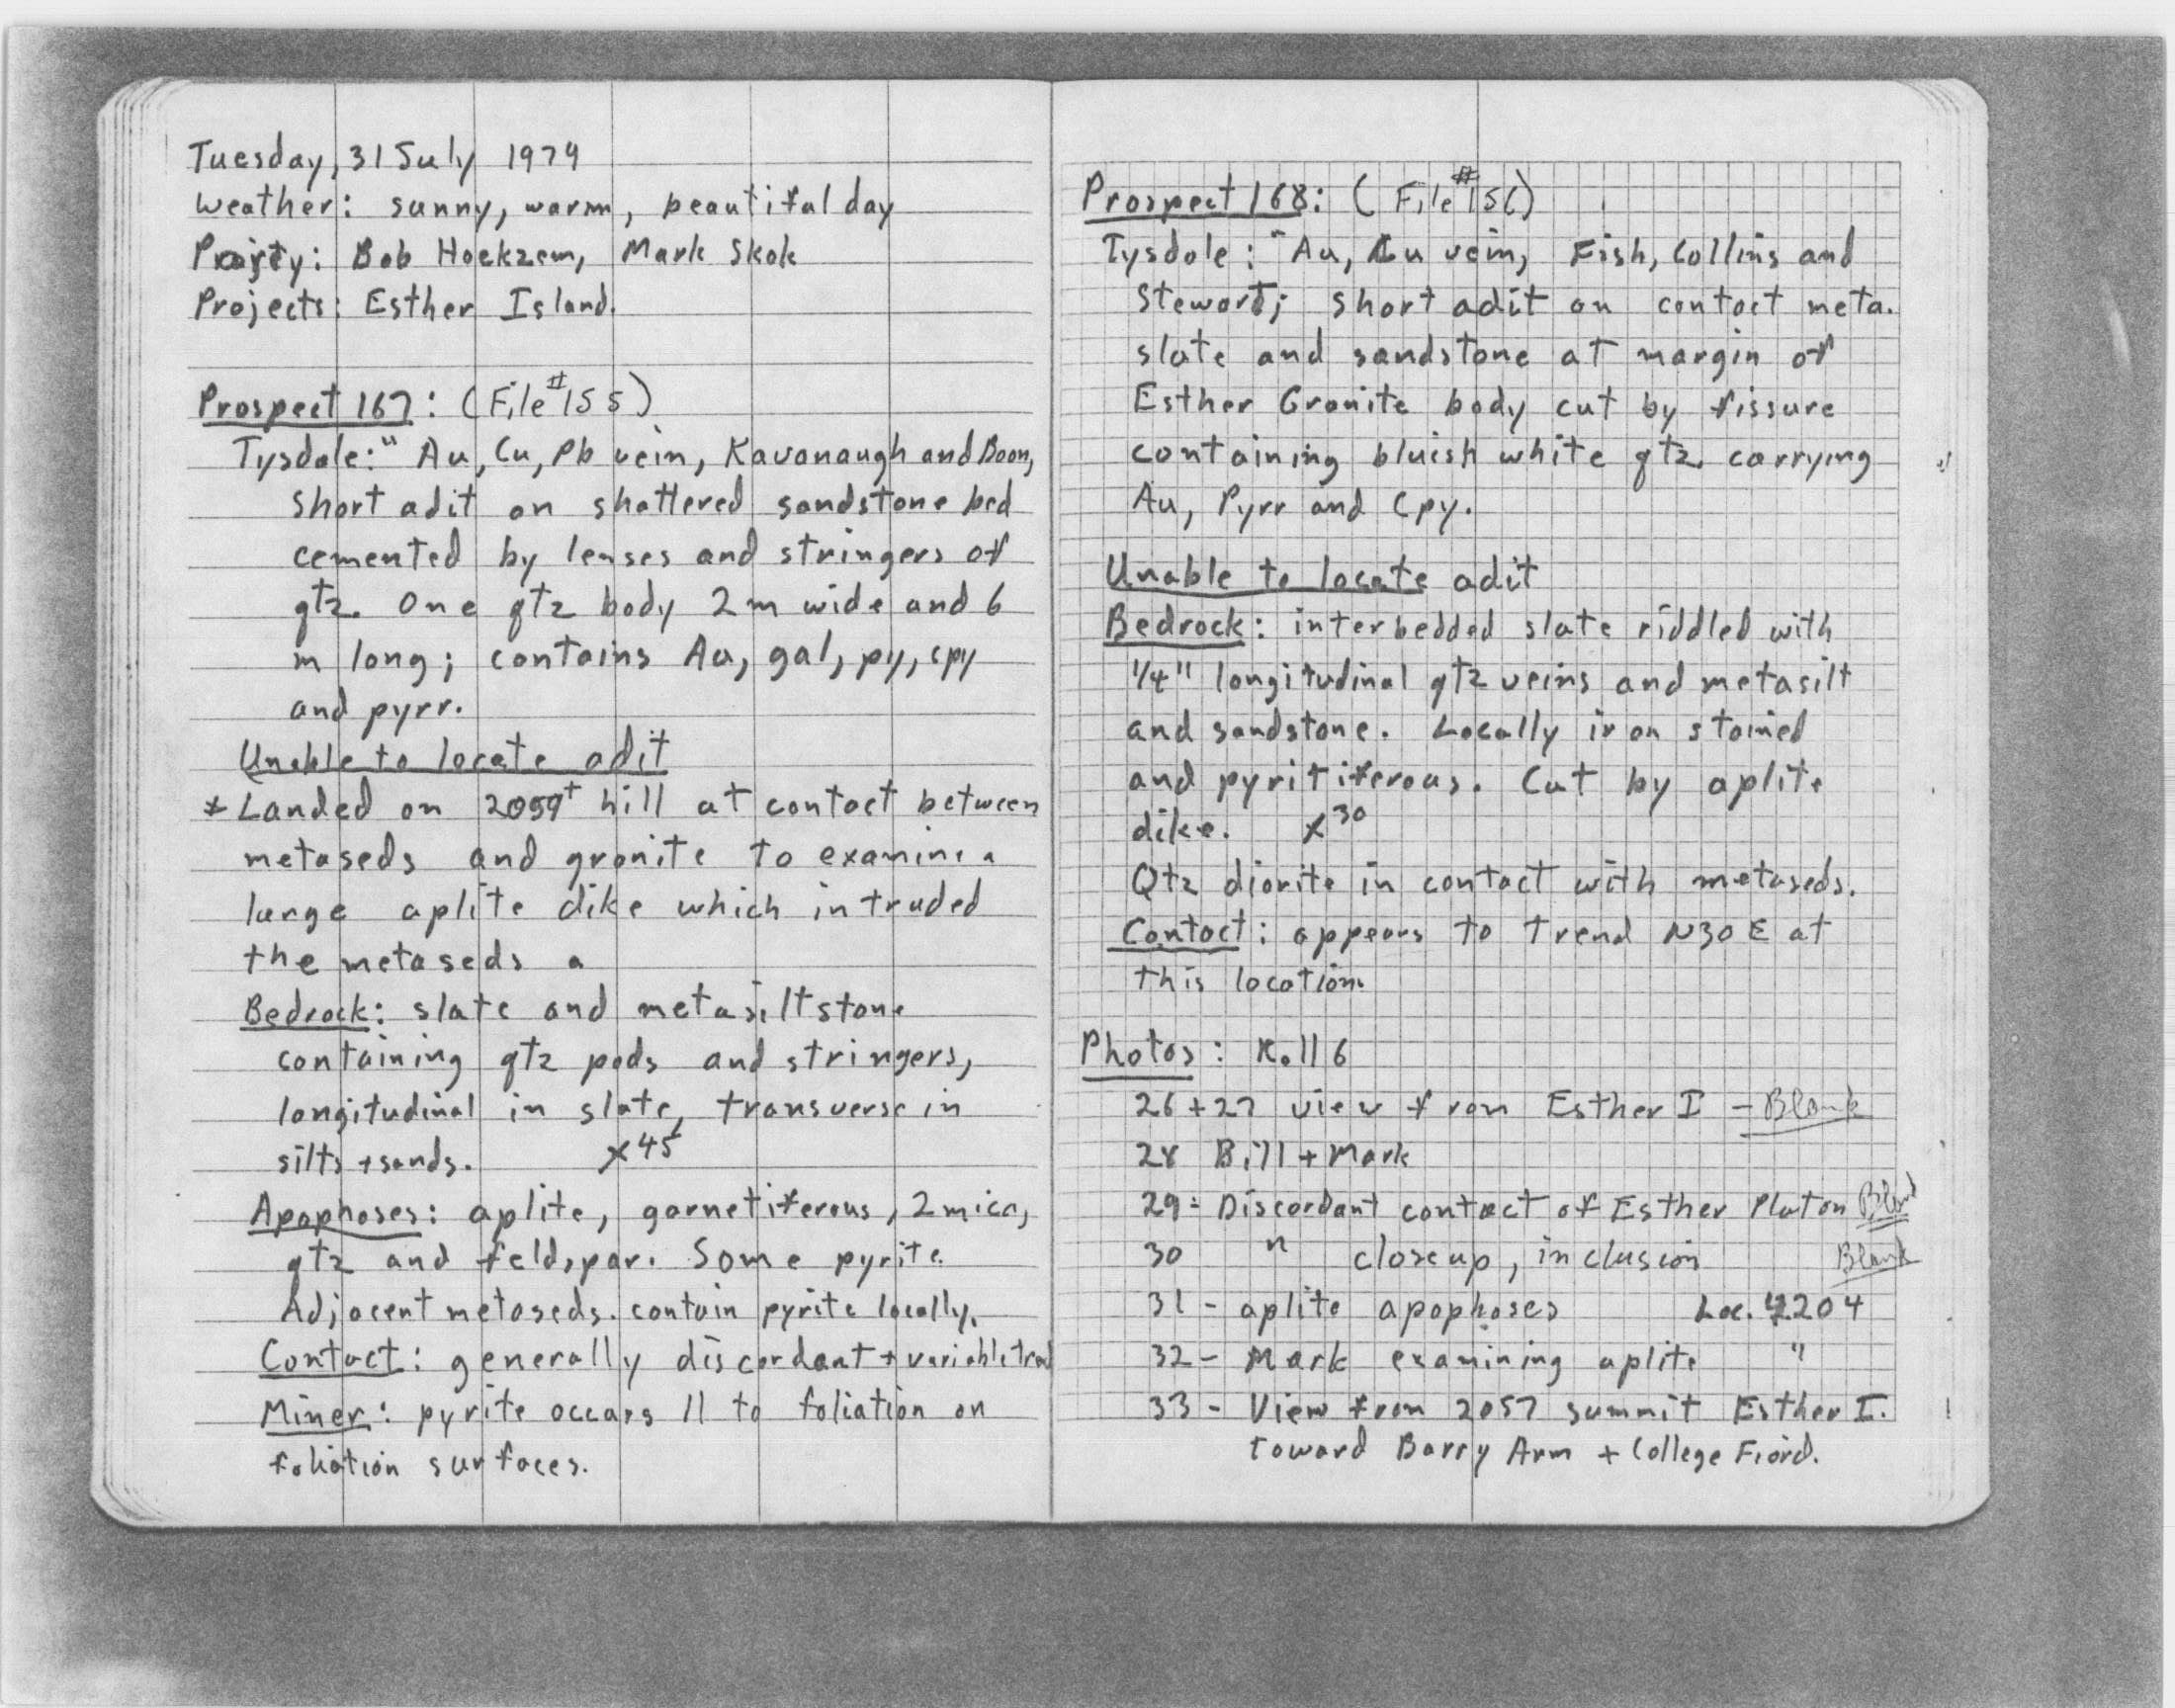 Tuesday, 31 July 1979
Weather: sunny, warm, beautiful day
Party: Bob Hoekzem, Mark Skok
Projects: Esther Island.
Prospect 167: (File #155)
Tysdale: " Au, Cu, Pb vein, Kavanaugh and Boon,
short adit on shattered sandstone bed
cemented by lenses and stringers of
qtz. One qtz body 2m wide and 6
m long; contains Au, gal, py, cpy
and pyrr.
Unable to locate adit
* Landed on hill at contact between
metaseds and granite to examine a
large aplite dike which intruded
the metaseds
Bedrock: slate and metasiltstone
containing qtz pods and stringers,
longitudinal in slate, transverse in
silts + sands. x 45
Apophoses: aplite, garnetiferous, 2 mica,
qtz and feldspar. Some pyrite.
Adjacent metaseds. contain pyrite locally.
Contact: generally discordant + variable
Miner: pyrite occurs 11 to foliation on
foliation surfaces.
Prospect 168: (File #156)
Tysdale: " Au, Cu vein, Fish, Collins and
Stewart; short adit on contact meta.
slate and sandstone at margin of
Esther Granite body cut by fissure
containing bluish white qtz. carrying
Au, Pyrr and Cpy.
Unable to locate adit
Bedrock: interbedded slate riddled with
1/4" longitudinal qtz veins and metasilt
and sandstone. Locally iron stained
and pyritiferous. Cut by aplite
dike. x 30
Qtz diorite in contact with metaseds.
Contact: appears to trend N30E at
this location.
Photos: Roll 6
26+27 view from Esther I - Blank
28 Bill + Mark
29 - Discordant contact of Esther Pluton
30 " closeup, inclusion Blank
31 - aplite apophoses Loc. 4204
32 - Mark examining aplite "
33 - View from 2057 summit Esther I.
toward Barry Arm + College Fiord.